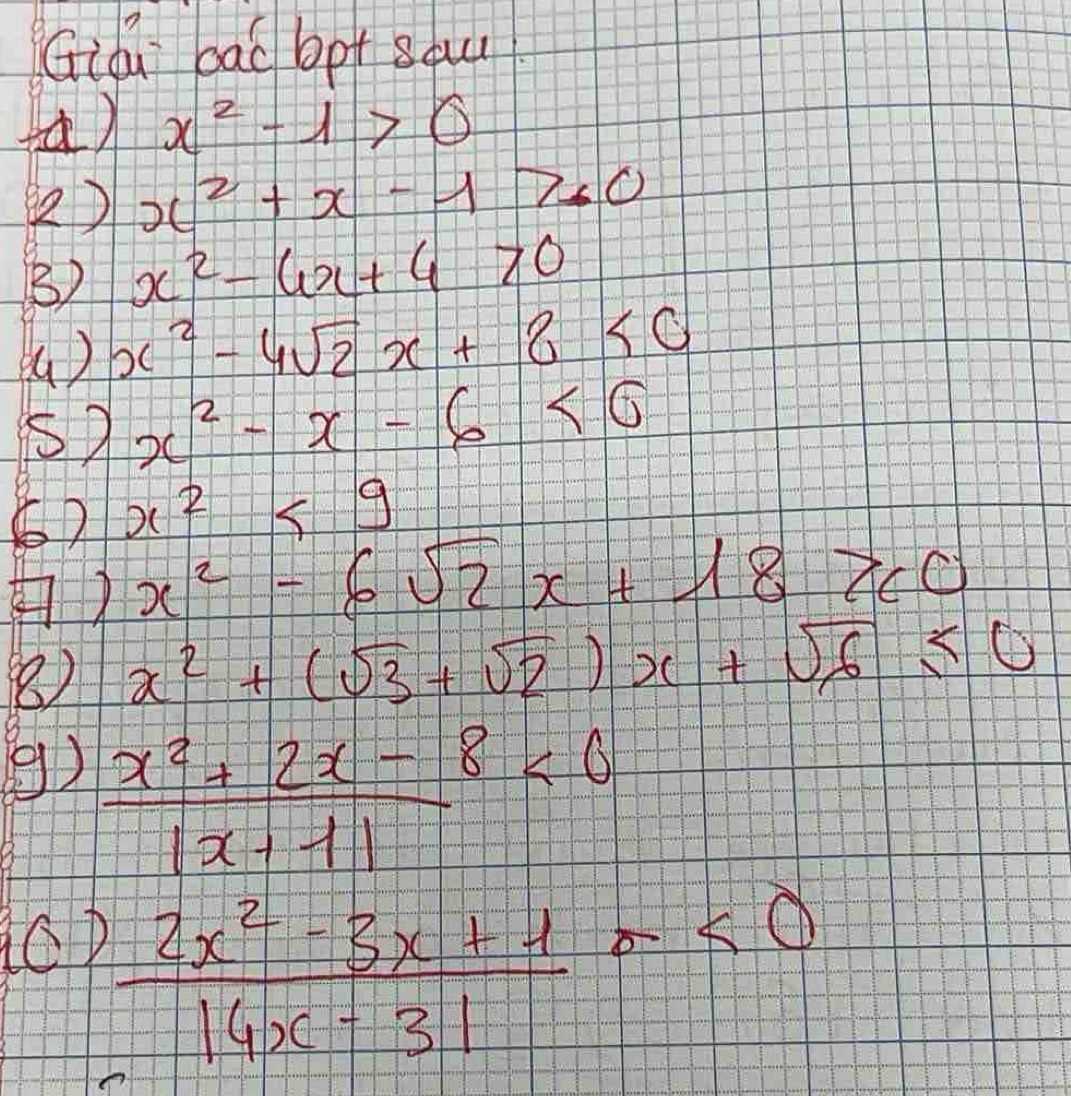 Giải các bpt sau:
1) x² - 1 > 0
2) x² + x - 1 ≥ 0
3) x² - 4x + 4 > 0
4) x² - 4√2 x + 8 < 0
5) x² - x - 6 < 0
6) x² < 9
7) x² - 6√2 x + 18 ≥ 0
8) x² + (√3 + √2)x + √6 ≤ 0
9) x² + 2x - 8 < 0
|x + 1|
10) 2x² - 3x + 1 < 0
|4x - 3|